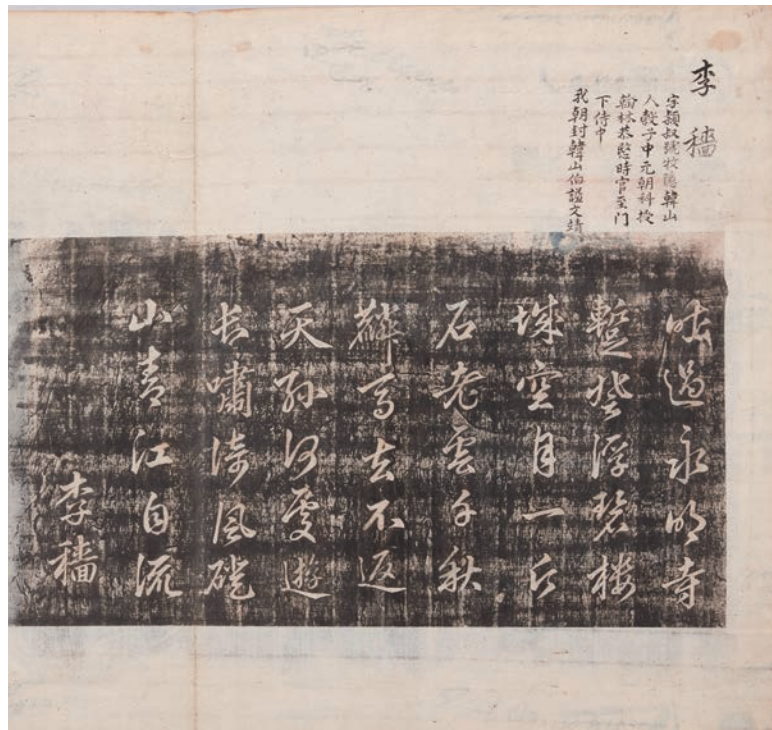 李穡
字穎叔號牧隱韓山
人穀子中元朝科授
翰林恭愍時官至门
下侍中
我朝封韓山伯諡文靖
昨過永明寺
蹔登浮碧樓
城空月一片
石老雲千秋
麟馬去不返
天孫何處遊
長嘯倚風磴
山青江自流
李穡